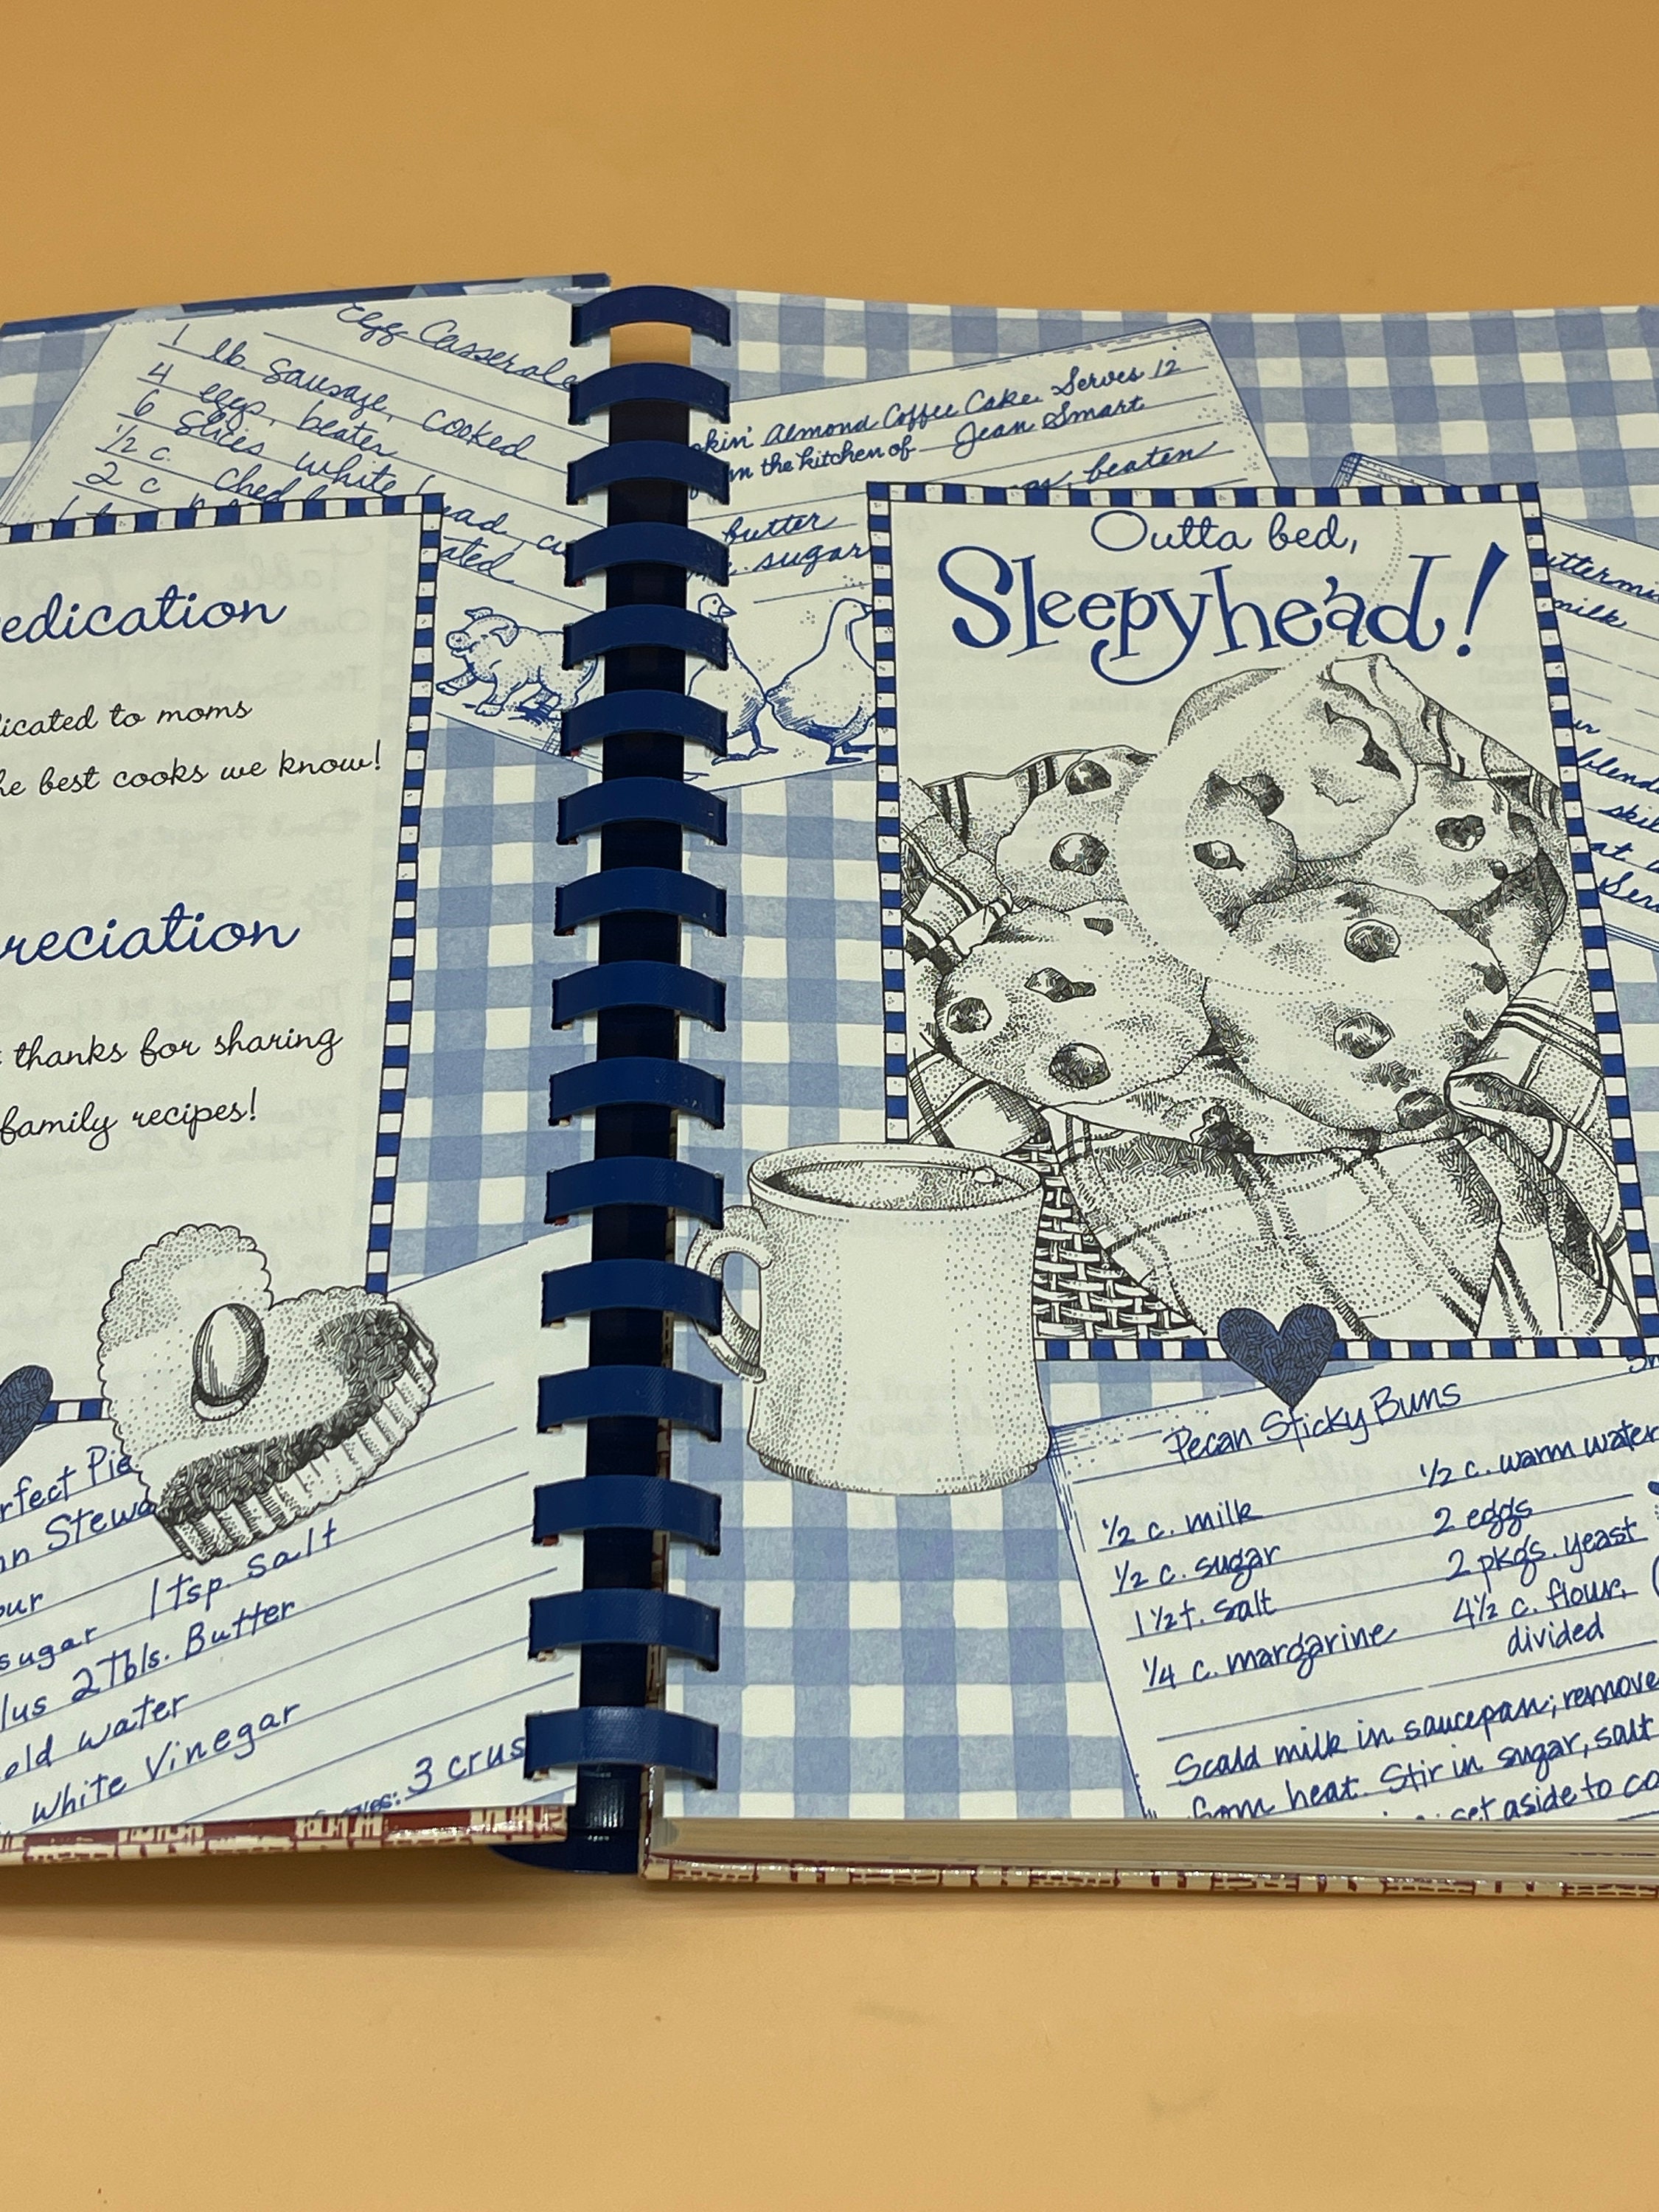 Egg Casserole
1 lb. sausage, cooked
4 eggs, beaten
6 slices white
1/2 c.
2 c
edication
icated to moms
he best cooks we know!
reciation
thanks for sharing
family recipes!
rfect Pie
nn Stewa
our
sugar 1 tsp. salt
lus 2 Tbls. Butter
old water
white Vinegar
3 crus
kin' Almond Coffee Cake Serves 12
m the kitchen of Jean Smart
beaten
butter
sugar
Outta bed,
Sleepyhead!
uttermi
milk
blend
skil
at
Ser
Pecan Sticky Buns
1/2 c. milk
1/2 c. sugar
1 1/2 t. salt
1/4 c. margarine
1/2 c. warm water
2 eggs
2 pkgs. yeast
4 1/2 c. flour,
divided
Scald milk in saucepan; remove
from heat. Stir in sugar, salt
set aside to co